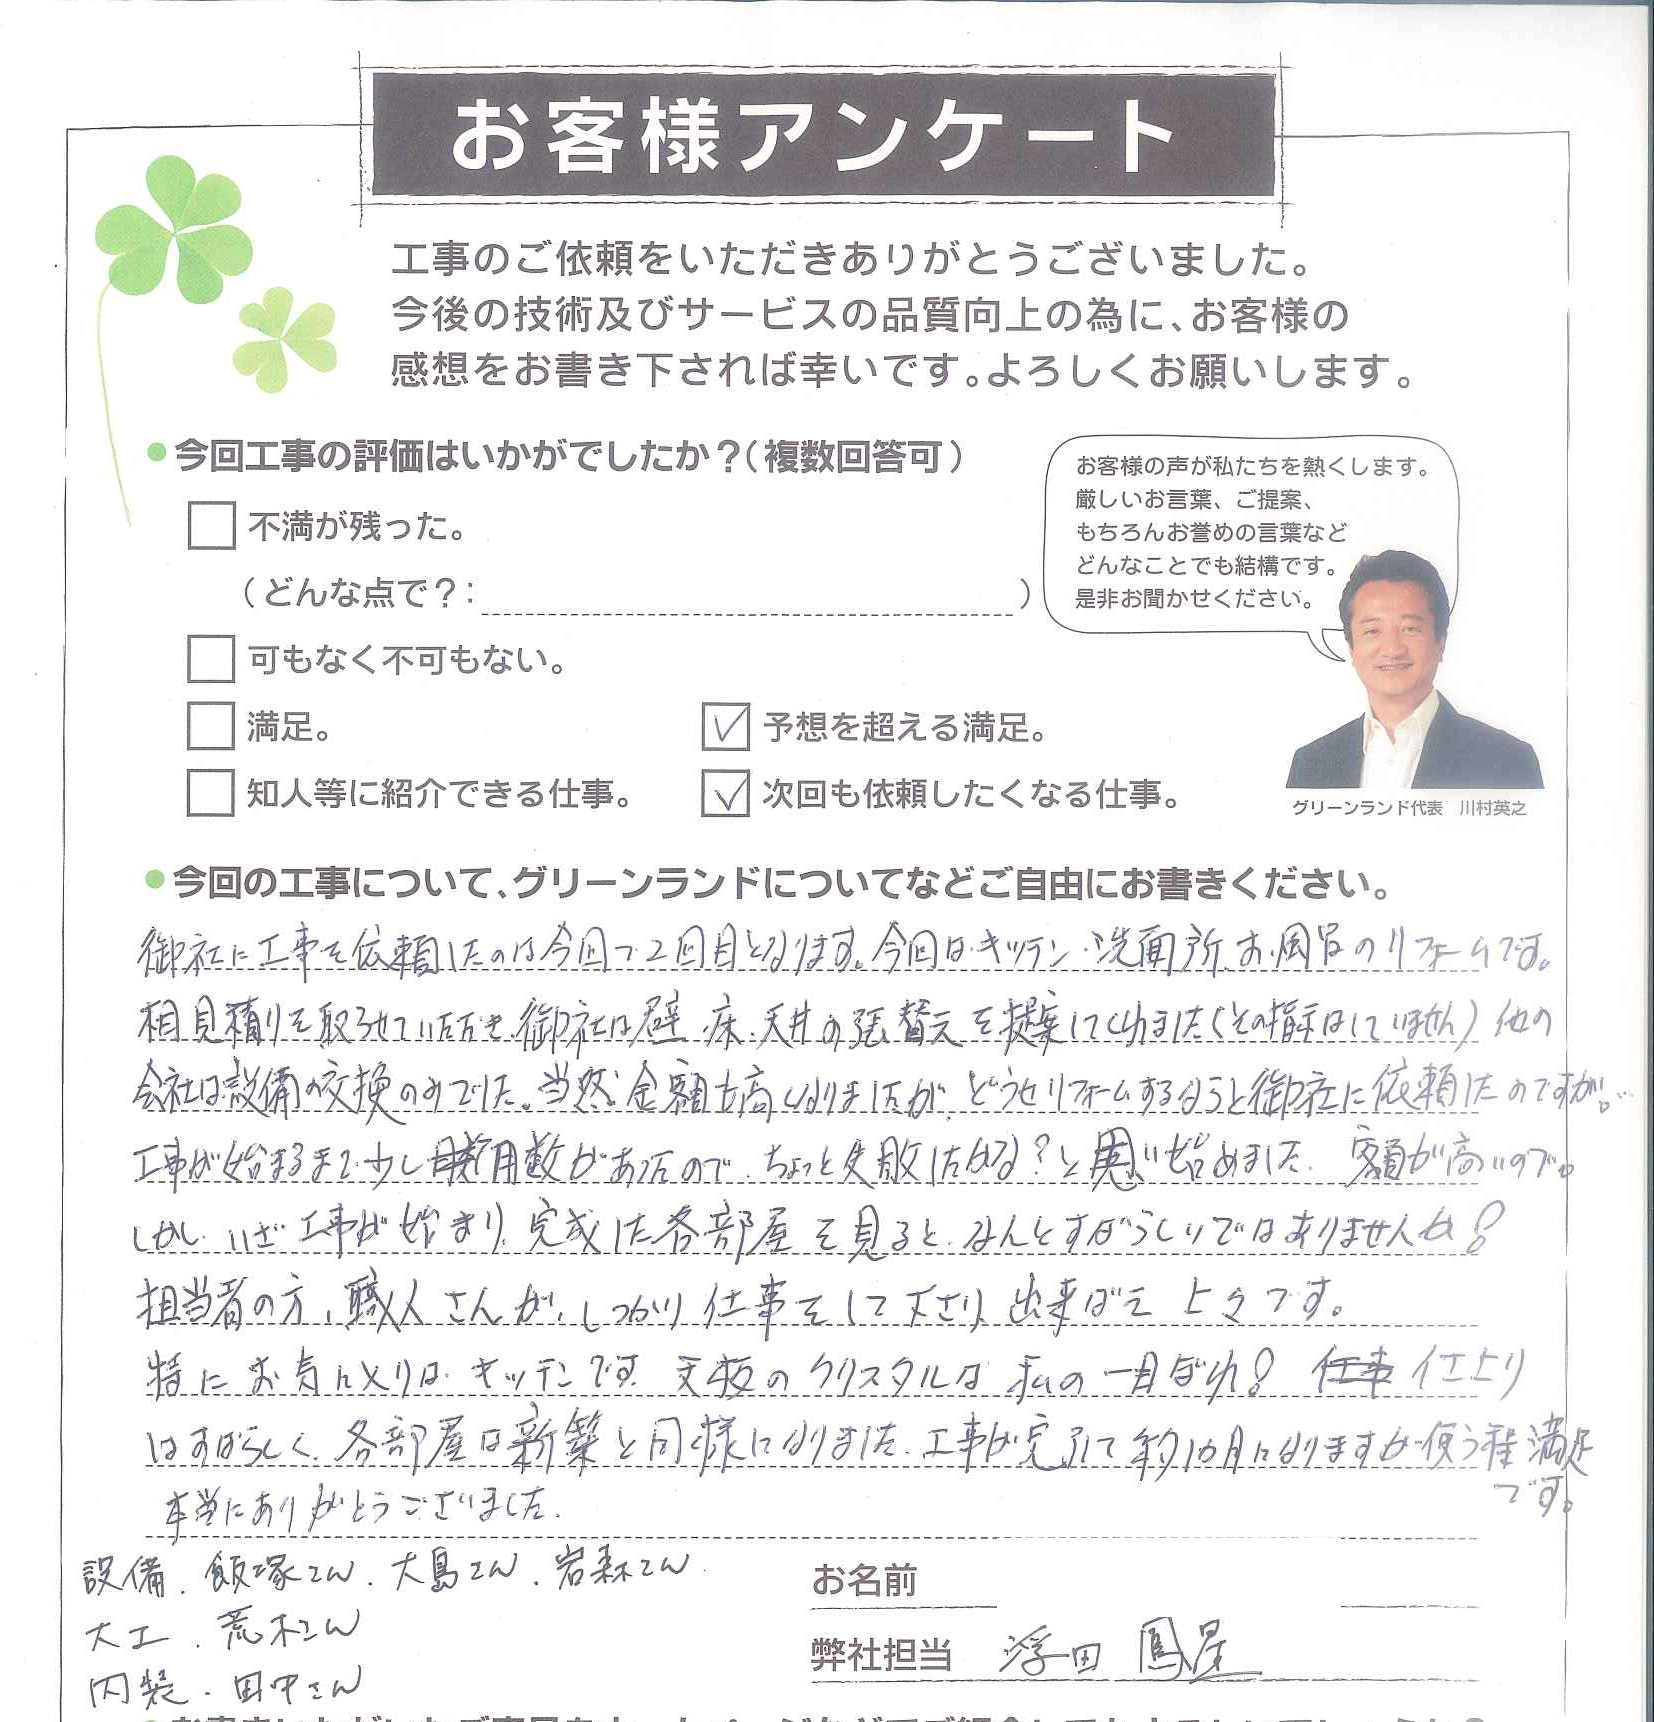 お客様アンケート
工事のご依頼をいただきありがとうございました。
今後の技術及びサービスの品質向上の為に、お客様の
感想をお書き下されば幸いです。よろしくお願いします。
●今回工事の評価はいかがでしたか？（複数回答可）
不満が残った。
（どんな点で？：　　　　）
可もなく不可もない。
満足。
予想を超える満足。
知人等に紹介できる仕事。
次回も依頼したくなる仕事。
お客様の声が私たちを熱くします。
厳しいお言葉、ご提案、
もちろんお誉めの言葉など
どんなことでも結構です。
是非お聞かせください。
グリーンランド代表　川村英之
●今回の工事について、グリーンランドについてなどご自由にお書きください。
御社に工事を依頼したのは今回で2回目となります。今回はキッチン、洗面所、お風呂のリフォームです。
相見積りを取らせていただき、御社は壁、床、天井の張替えを提案してくれました（その指示はしていません）他の
会社は設備の交換のみでした。当然、金額も高くなりましたが、どうせリフォームするならと御社に依頼したのですが…。
工事が始まるまで少し日数があったので、ちょっと失敗したかな？と思い始めました。額が高いので。
しかし、いざ工事が始まり、完成した各部屋を見ると、なんとすばらしいではありませんか！
担当者の方、職人さんが、しっかり仕事をして下さり、出来ばえ上々です。
特にお気に入りは、キッチンです。天板のクリスタルは私の一目ぼれ！仕上り
はすばらしく、各部屋は新築と同様になりました。工事が完了して約1カ月になりますが使う程満足
です。
本当にありがとうございました。
設備、飯塚さん、大島さん、岩森さん
大工、荒木さん
内装、田中さん
お名前
弊社担当　浮田 鳳星